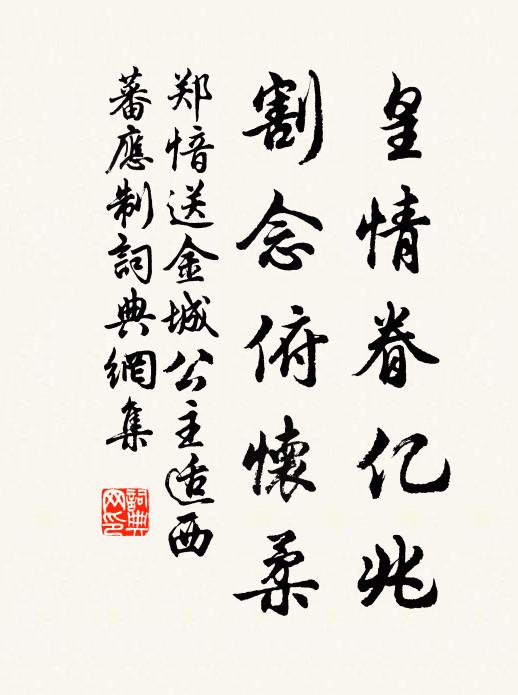 皇情眷亿兆
割念俯懷柔
郑愔送金城公主适西
蕃應制詞典網集
詞典网印